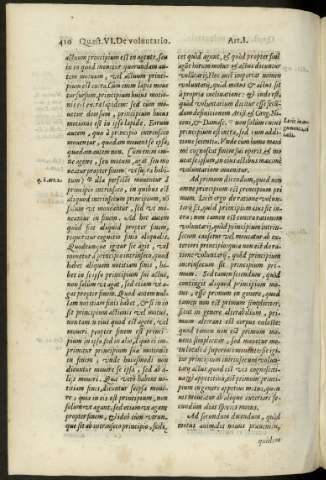 410 Quæst. VI. De voluntario. Art. I.
actuum principium est in agente, seu
in eo quod mouetur, quorundam au-
tem motuum, vel actuum princi-
pium est extra. Cum enim lapis moue
tur sursum, principium huius motio-
nis est extra lapidem: sed cum mo-
uetur deorsum, principium huius
motionis est in ipso lapide. Eorum
autem, quæ à principio intrinseco
mouentur, quædam mouent se ipsa,
quædam autem non. Cum enim om-
ne agens, seu motum, agat seu mo
ueatur propter finem
q. 1. art. 2.
illa perfecte mouentur à
principio intrinseco, in quibus est
aliquod intrinsecum principium, nō
solùm vt moueantur, sed vt mo-
ueantur in finem. Ad hoc autem
quòd fiat aliquid propter finem,
requiritur cognitio finis aliqualis.
Quodcunque igitur sic agit, vel
mouetur à principio intrinseco, quod
habet aliquam notitiam finis, ha-
bet in seipso principium sui actus,
non solùm vt agat, sed etiam vt a-
gat propter finem. Quod autem nul-
lam notitiam finis habet, & si in eo
sit principium actionis vel motus,
non tamen eius quod est agere, vel
moueri propter finem est princi-
pium in ipso, sed in alio, à quo ei im-
primitur principium suæ motionis
in finem, vnde huiusmodi non
dicuntur mouere se ipsa, sed ab a-
lijs moueri. Quæ verò habent no-
titiam finis, dicuntur seipsa moue-
re; quia in eis est principium, non
solùm vt agant, sed etiam vt agant
propter finem, & ideo cùm vtrun-
que sit ab intrinseco principio, scili-
cet quòd agant, & quòd propter finē
agāt horum motus & actus dicūtur
voluntarij. Hoc enim importat nomen
voluntarij, quòd motus & actus sit
à propria inclinatione: & inde est,
quòd voluntarium dicitur esse secun-
dum
non solùm cuius
principium est intra, sed cum addi-
tione scientiæ. Vnde cùm homo maxi
mè cognoscat finem sui operis, & mo
ueat seipsum, in eius actibus maximè
voluntarium inuenitur.
Ad primum dicendum, quòd non
omne principium est principium pri
mum. Licet ergo de ratione volun-
tarij sit, quòd principium eius sit in-
tra; non tamen est contra rationem
voluntarij, quòd principium intrin-
secum causetur vel moueatur ab ex-
teriore principio: quia non est de ra-
tione voluntarij, quòd principium
intrinsecum sit principium pri-
mum. Sed tamen sciendum, quòd
contingit aliquod principium mo-
tus, esse primum in genere, quod
tamen non est primum simpliciter:
sicut in genere alterabilium, pri-
mum alterans est corpus cæleste:
quod tamen non est primum mo-
uens simpliciter, sed mouetur mo-
tu locali à superiori mouente: sic er-
go principium intrinsecum volunta-
rij actus, quod est vis cognosciti-
ua & appetitiua, est primum princi-
pium in genere appetitiui motus, quam-
uis moueatur ab aliquo exteriori se-
cundum alias species motus.
Ad secundum dicendum, quòd
motus animalis nouus præuenitur,
quidem